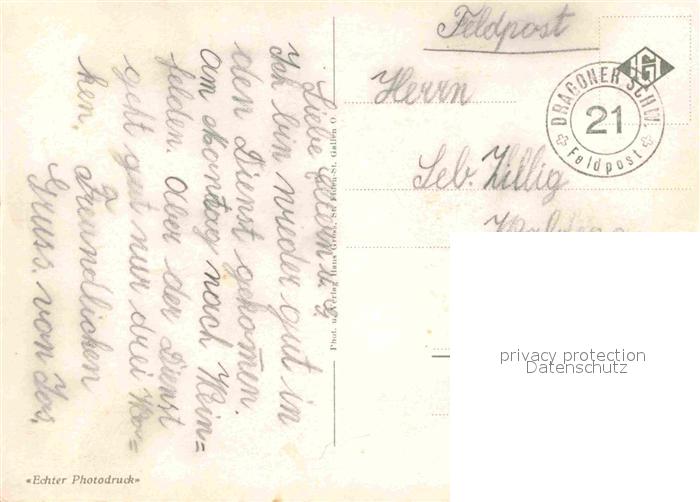 Feldpost
HGI
DRAGONER SCHW.
21
Feldpost
Herrn
Seb. Zillig
Liebe Eltern u. G
Ich bin wieder gut in
den Dienst gekommen.
Am Montag nach Wein=
felden. Aber der Dienst
geht gut nur drei Wo=
hen.
Freundlichen
Gruss. von Jos.
Phot. u. Verlag Hans Gross, St. Fiden-St. Gallen O
«Echter Photodruck»
privacy protection
Datenschutz